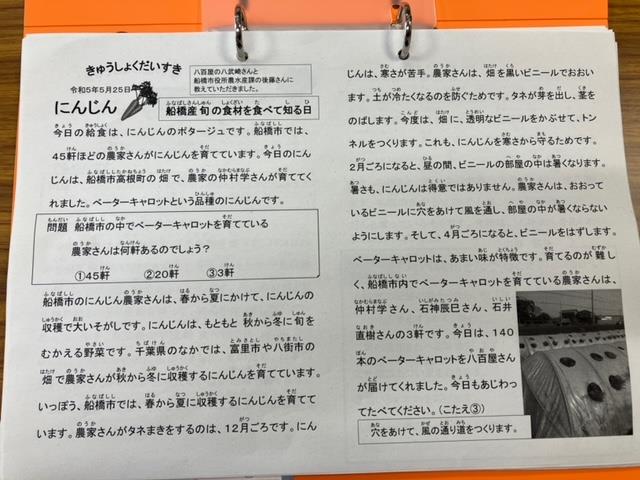 きゅうしょくだいすき
八百屋の八武崎さんと
船橋市役所農水産課の後藤さんに
教えていただきました。
令和5年5月25日
にんじん
船橋産旬の食材を食べて知る日
今日の給食は、にんじんのポタージュです。船橋市では、
45軒ほどの農家さんがにんじんを育てています。今日のにん
じんは、船橋市高根町の畑で、農家の仲村学さんが育ててく
れました。ベーターキャロットという品種のにんじんです。
問題 船橋市の中でベーターキャロットを育てている
農家さんは何軒あるのでしょう?
①45軒 ②20軒 ③3軒
船橋市のにんじん農家さんは、春から夏にかけて、にんじんの
収穫で大いそがしです。にんじんは、もともと秋から冬に旬を
むかえる野菜です。千葉県のなかでは、富里市や八街市の
畑で農家さんが秋から冬に収穫するにんじんを育てています。
いっぽう、船橋市では、春から夏に収穫するにんじんを育てて
います。農家さんがタネまきをするのは、12月ごろです。にん
じんは、寒さが苦手。農家さんは、畑を黒いビニールでおおい
ます。土が冷たくなるのを防ぐためです。タネが芽を出し、茎を
のばします。今度は、畑に、透明なビニールをかぶせて、トン
ネルをつくります。これも、にんじんを寒さから守るためです。
2月ごろになると、昼の間、ビニールの部屋の中は暑くなります。
暑さも、にんじんは得意ではありません。農家さんは、おおって
いるビニールに穴をあけて風を通し、部屋の中が暑くならない
ようにします。そして、4月ごろになると、ビニールをはずします。
ベーターキャロットは、あまい味が特徴です。育てるのが難し
く、船橋市内でベーターキャロットを育てている農家さんは、
仲村学さん、石神辰巳さん、石井
直樹さんの3軒です。今日は、140
本のベーターキャロットを八百屋さん
が届けてくれました。今日もあじわっ
てたべてください。(こたえ③)
穴をあけて、風の通り道をつくります。